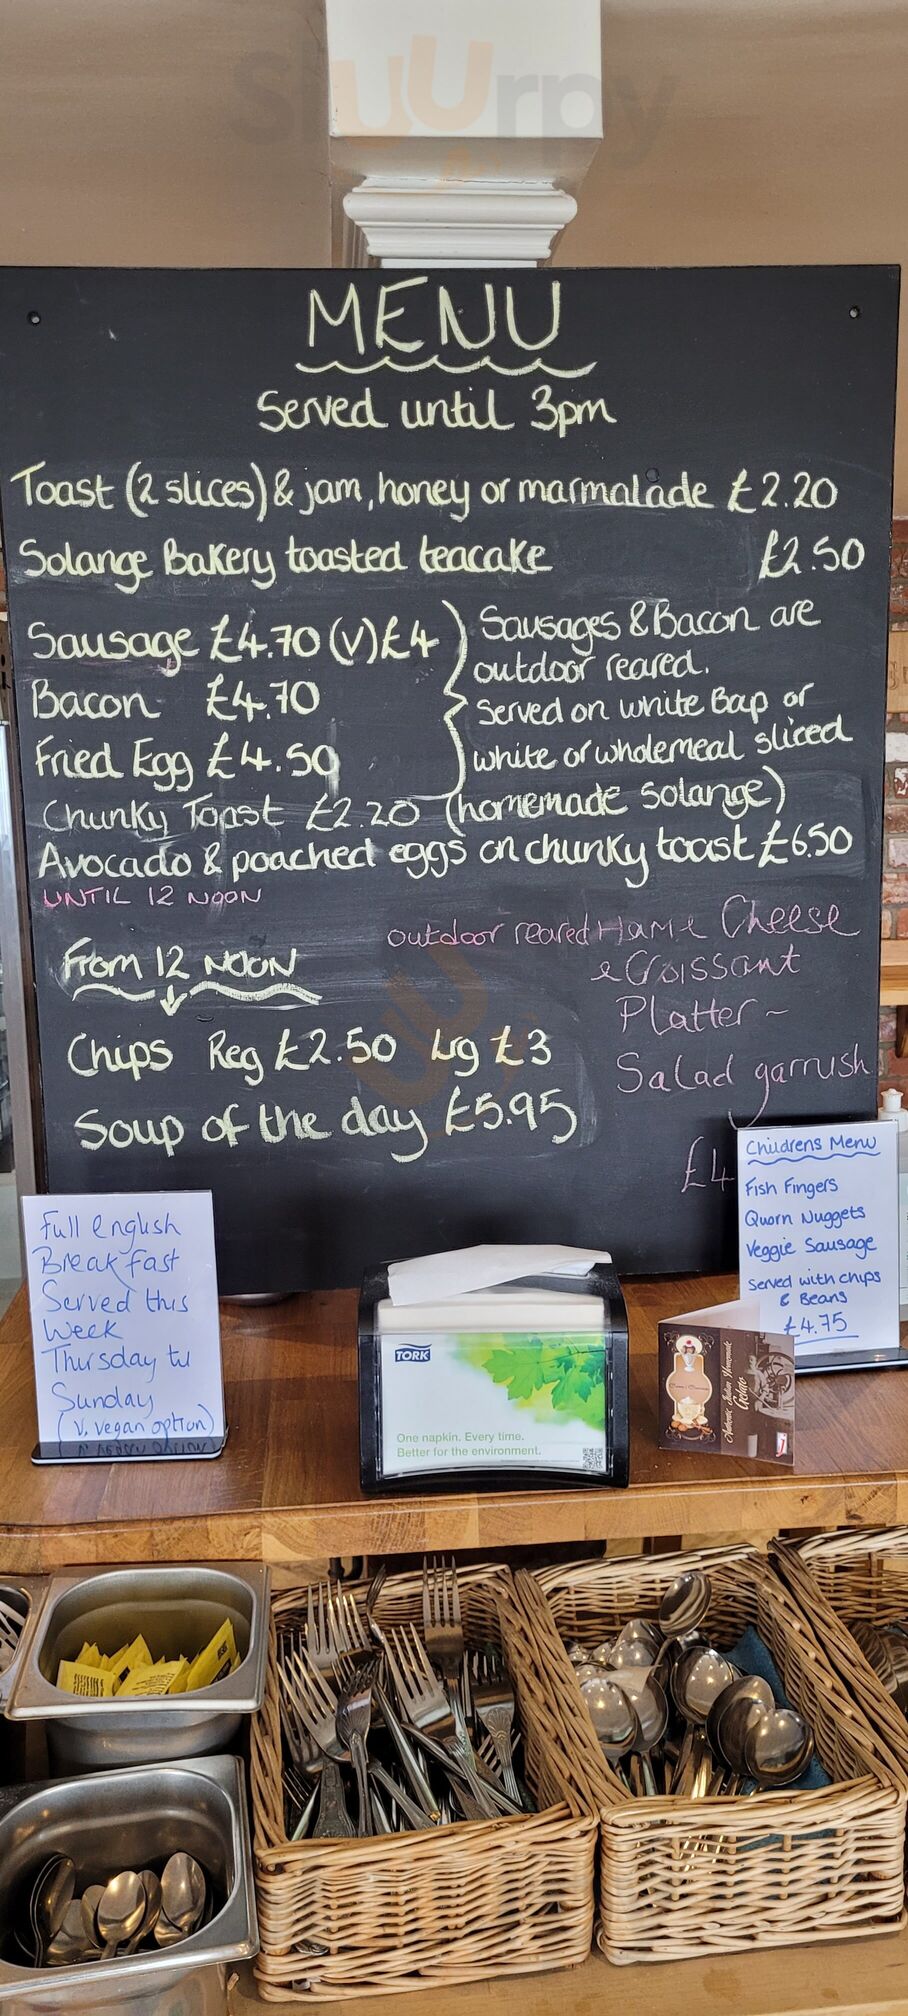 slUUrpy
MENU
Served until 3pm
Toast (2 slices) & jam, honey or marmalade £2.20
Solange Bakery toasted teacake £2.50
Sausage £4.70 (v) £4
Bacon £4.70
Fried Egg £4.50
Sausages & Bacon are
outdoor reared.
Served on white Bap or
white or wholemeal sliced
Chunky Toast £2.20 (homemade solange)
Avocado & poached eggs on chunky toast £6.50
UNTIL 12 NOON
From 12 NOON
Chips Reg £2.50 Lrg £3
Soup of the day £5.95
outdoor reared Ham & Cheese
& Croissant
Platter ~
Salad garnish
£4
Full english
Breakfast
Served this
Week
Thursday til
Sunday
(v, vegan option)
Childrens Menu
Fish Fingers
Quorn Nuggets
Veggie Sausage
Served with chips
& Beans
£4.75
TORK
One napkin. Every time.
Better for the environment.
Authentic Italian Homemade
Gelato